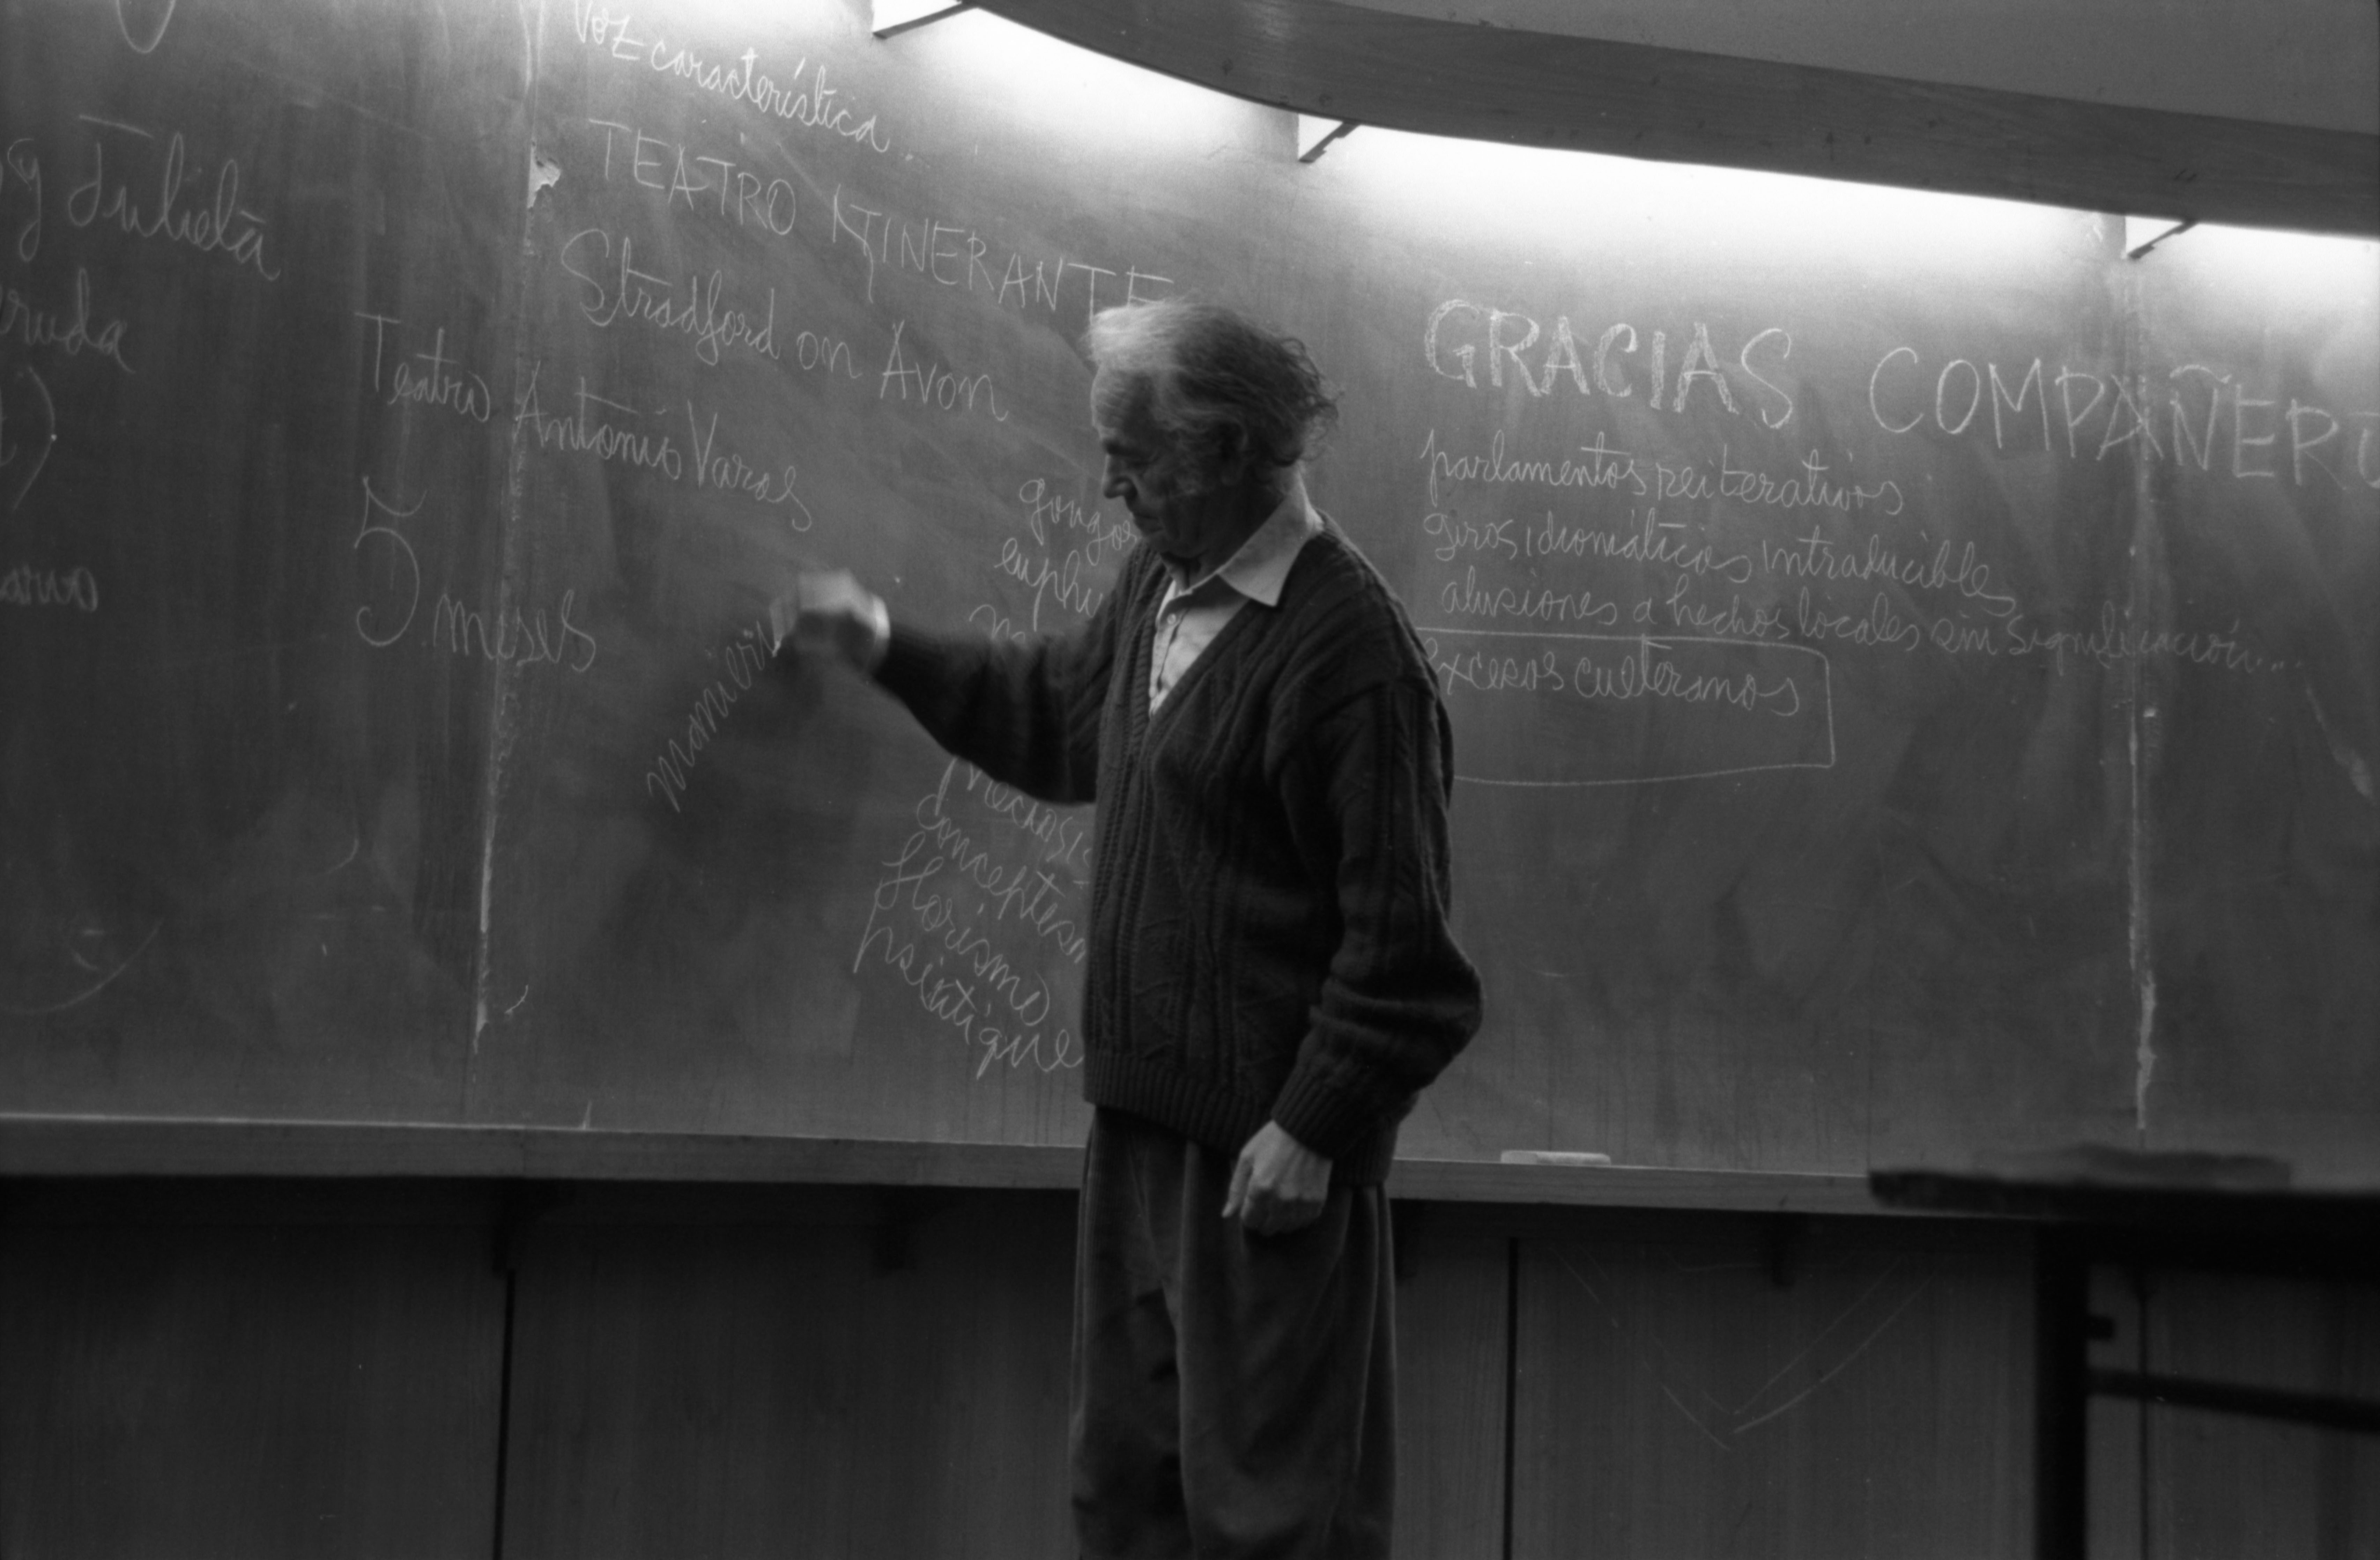 y Julieta
Voz característica.
TEATRO ITINERANTE
Stradford on Avon
Teatro Antonio Varas
5 meses
gongor
euphu
conceptism
florismo
GRACIAS COMPAÑERO
parlamentos reiterativos
giros idiomáticos intraducibles
alusiones a hechos locales sin significación...
excesos culteranos